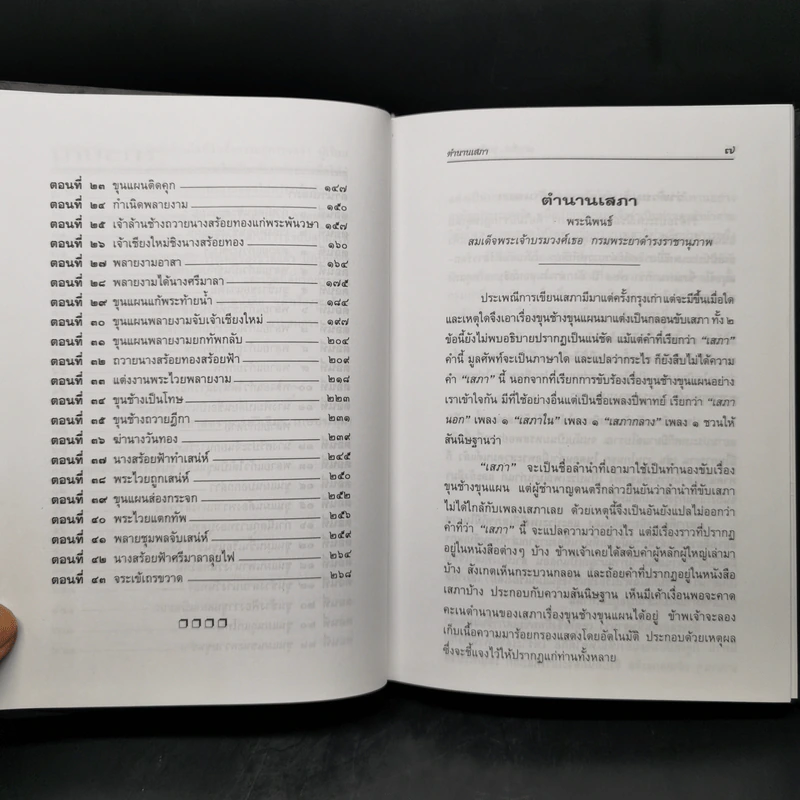 ตอนที่ ๒๓ ขุนแผนติดคุก ๑๔๗
ตอนที่ ๒๔ กำเนิดพลายงาม ๑๕๐
ตอนที่ ๒๕ เจ้าล้านช้างถวายนางสร้อยทองแก่พระพันวษา ๑๕๗
ตอนที่ ๒๖ เจ้าเชียงใหม่ชิงนางสร้อยทอง ๑๖๐
ตอนที่ ๒๗ พลายงามอาสา ๑๖๔
ตอนที่ ๒๘ พลายงามได้นางศรีมาลา ๑๗๕
ตอนที่ ๒๙ ขุนแผนแก้พระท้ายน้ำ ๑๘๔
ตอนที่ ๓๐ ขุนแผนพลายงามจับเจ้าเชียงใหม่ ๑๙๗
ตอนที่ ๓๑ ขุนแผนพลายงามยกทัพกลับ ๒๐๔
ตอนที่ ๓๒ ถวายนางสร้อยทองสร้อยฟ้า ๒๐๙
ตอนที่ ๓๓ แต่งงานพระไวยพลายงาม ๒๑๘
ตอนที่ ๓๔ ขุนช้างเป็นโทษ ๒๒๓
ตอนที่ ๓๕ ขุนช้างถวายฎีกา ๒๓๑
ตอนที่ ๓๖ ฆ่านางวันทอง ๒๓๙
ตอนที่ ๓๗ นางสร้อยฟ้าทำเสน่ห์ ๒๔๕
ตอนที่ ๓๘ พระไวยถูกเสน่ห์ ๒๕๐
ตอนที่ ๓๙ ขุนแผนส่องกระจก ๒๕๒
ตอนที่ ๔๐ พระไวยแตกทัพ ๒๕๖
ตอนที่ ๔๑ พลายชุมพลจับเสน่ห์ ๒๕๙
ตอนที่ ๔๒ นางสร้อยฟ้าศรีมาลาลุยไฟ ๒๖๔
ตอนที่ ๔๓ จระเข้เถรขวาด ๒๖๘
ตำนานเสภา ๗
ตำนานเสภา
พระนิพนธ์
สมเด็จพระเจ้าบรมวงศ์เธอ กรมพระยาดำรงราชานุภาพ
ประเพณีการเขียนเสภามีมาแต่ครั้งกรุงเก่า แต่จะมีขึ้นเมื่อใด
และเหตุใดจึงเอาเรื่องขุนช้างขุนแผนมาแต่งเป็นกลอนขับเสภา ทั้ง ๒
ข้อนี้ยังไม่พบอธิบายปรากฏเป็นแน่ชัด แม้แต่คำที่เรียกว่า “เสภา”
คำนี้ มูลศัพท์จะเป็นภาษาใด และแปลว่ากระไร ก็ยังสืบไม่ได้ความ
คำ “เสภา” นี้ นอกจากที่เรียกการขับร้องเรื่องขุนช้างขุนแผนอย่าง
เราเข้าใจกัน มีที่ใช้อย่างอื่นแต่เป็นชื่อเพลงปี่พาทย์ เรียกว่า “เสภา
นอก” เพลง ๑ “เสภาใน” เพลง ๑ “เสภากลาง” เพลง ๑ ชวนให้
สันนิษฐานว่า
“เสภา” จะเป็นชื่อลำนำที่เอามาใช้เป็นทำนองขับเรื่อง
ขุนช้างขุนแผน แต่ผู้ชำนาญดนตรีกล่าวยืนยันว่าลำนำที่ขับเสภา
ไม่ได้ใกล้กับเพลงเสภาเลย ด้วยเหตุนี้จึงเป็นอันยังแปลไม่ออกว่า
คำที่ว่า “เสภา” นี้ จะแปลความว่าอย่างไร แต่มีเรื่องราวที่ปรากฏ
อยู่ในหนังสือต่างๆ บ้าง ข้าพเจ้าเคยได้สดับคำผู้หลักผู้ใหญ่เล่ามา
บ้าง สังเกตเห็นกระบวนกลอน และถ้อยคำที่ปรากฏอยู่ในหนังสือ
เสภาบ้าง ประกอบกับความสันนิษฐาน เห็นมีเค้าเงื่อนพอจะคาด
คะเนตำนานของเสภาเรื่องขุนช้างขุนแผนได้อยู่ ข้าพเจ้าจะลอง
เก็บเนื้อความมาร้อยกรองแสดงโดยอัตโนมัติ ประกอบด้วยเหตุผล
ซึ่งจะชี้แจงไว้ให้ปรากฏแก่ท่านทั้งหลาย